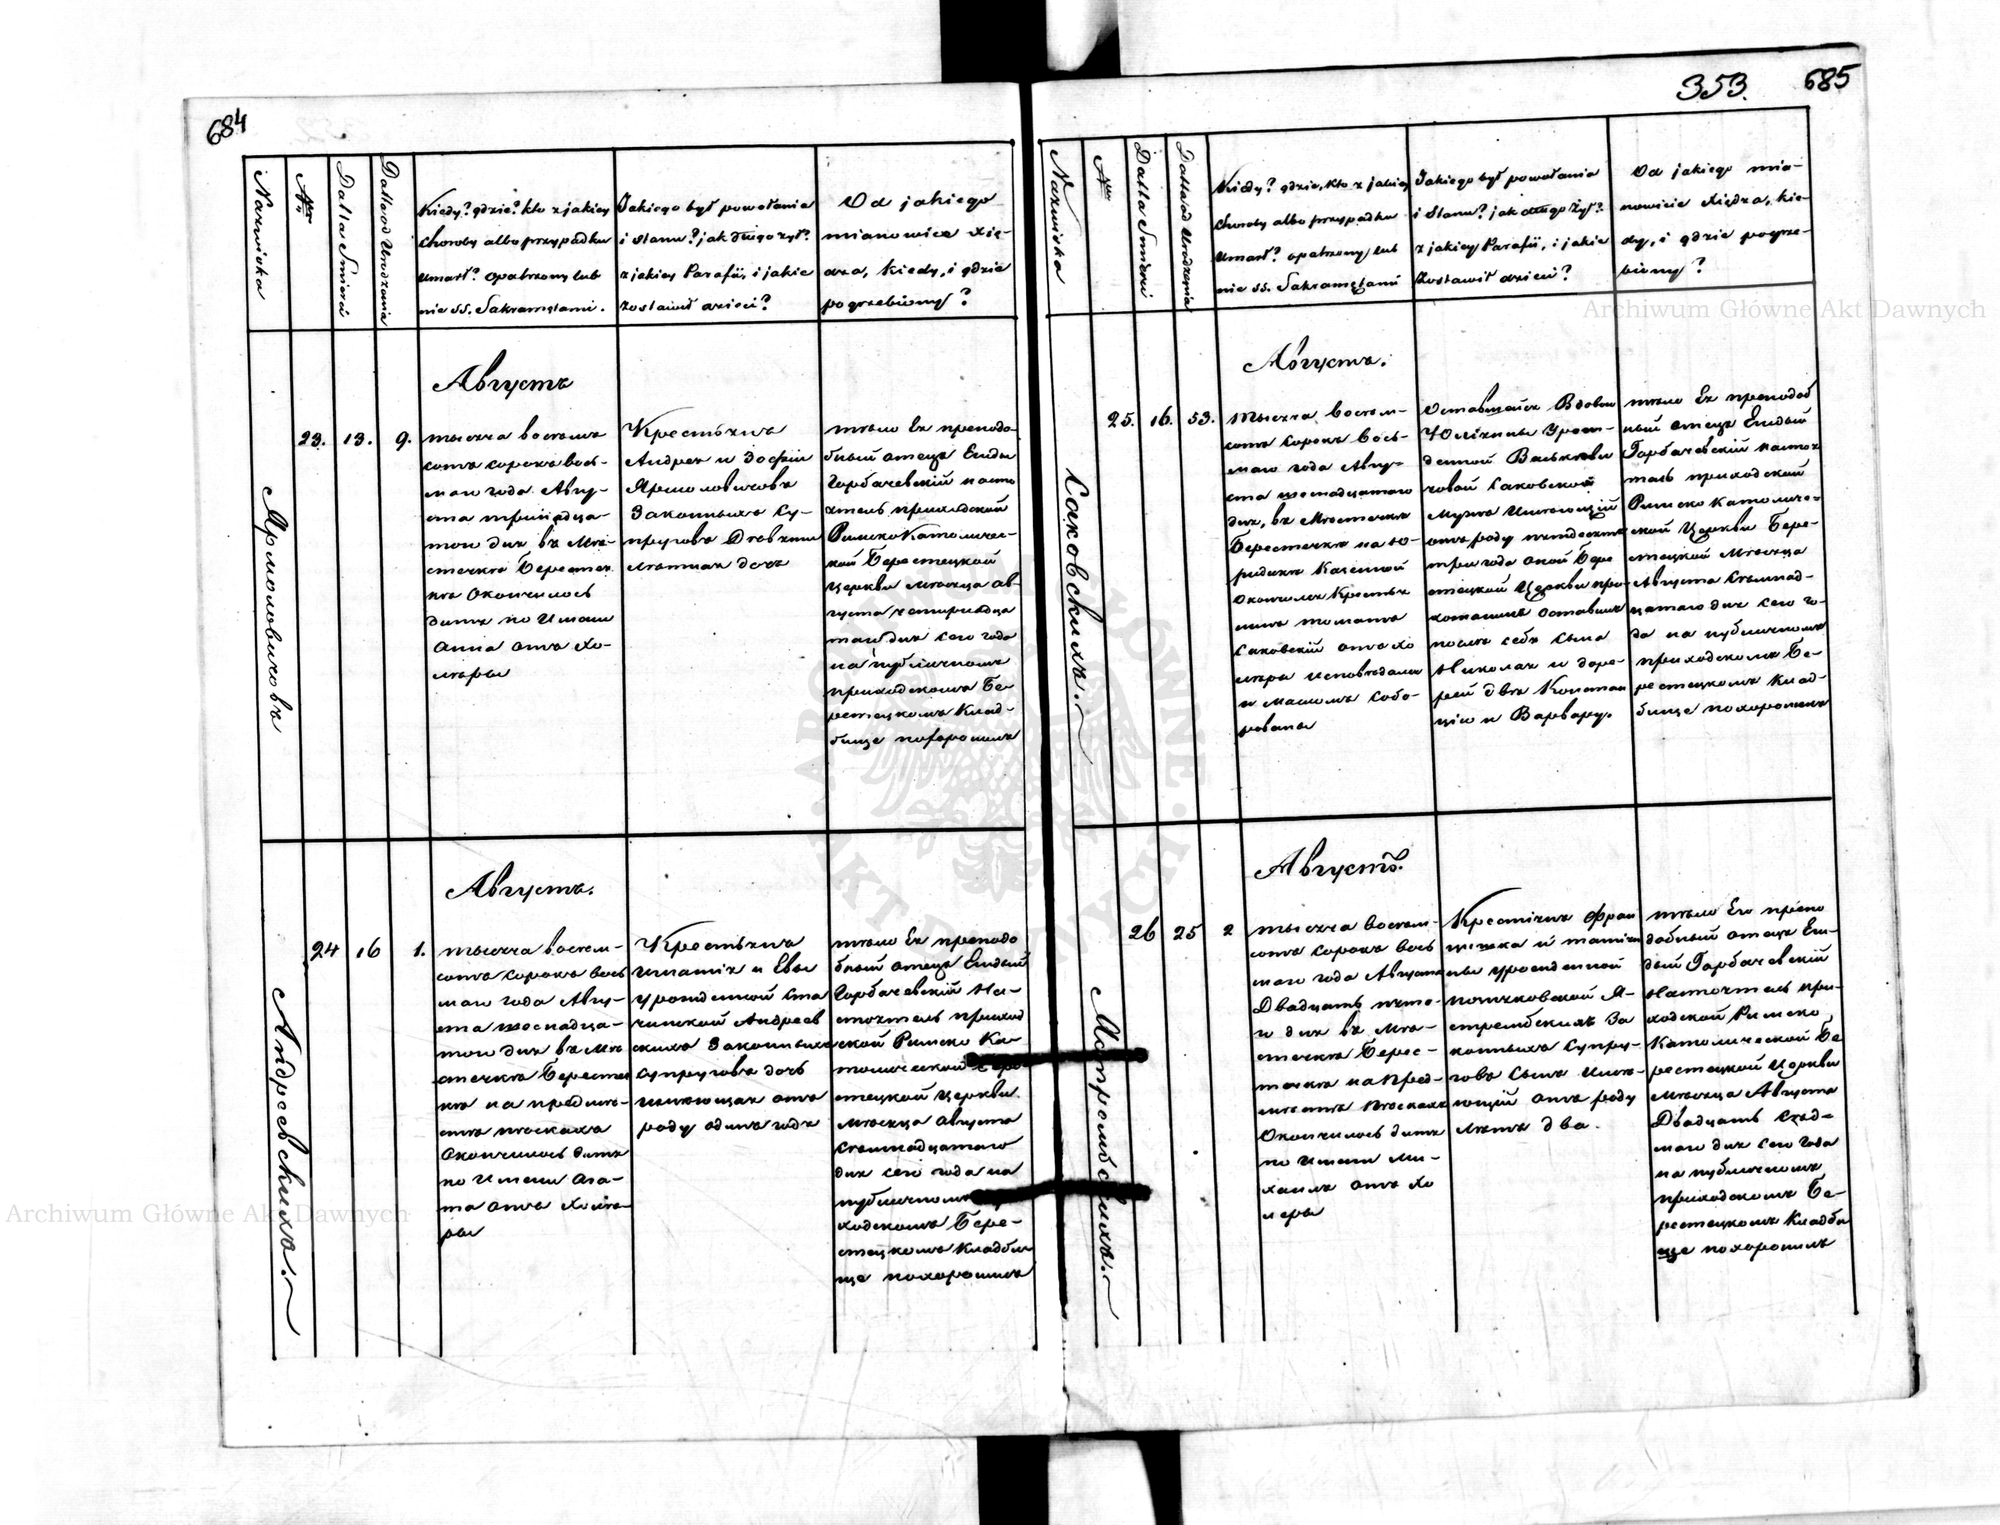 684
Nazwiska
Nr
Datta Smierći
Datta od Urodzenia
Kiedy? gdzie? kto z jakiey
choroby albo przypadku
umarł? opatrzony lub
nie SS. Sakramętami.
Jakiego był powołania
i stanu? jak długo żył?
z jakiey Parafii, i jakie
zostawił dzieci?
Od jakiego
mianowice Xię-
dza, kiedy, i gdzie
pogrzebiony?
Ярмоловичовъ
23.
13.
9.
Августъ
тысяча восемъ
сотъ сорокъ вось-
маго года Авгу-
ста тринадца-
того дня въ Мѣ-
стечкѣ Берестеч
кѣ окончилось
дитя по имени
Анна отъ хо-
леры
Крестьянъ
Андрея и Зофіи
Ярмоловичовъ
Законныхъ Су-
пруговъ Девяти
лѣтняя дочь
тѣло Ея преподо-
бный отецъ Емди
Горбачевскій насто
ятель приходской
Римско Католичес-
кой Берестецкой
Церкви мѣсяца ав-
густа четырнадца
таго дня сего года
на публичномъ
приходскомъ Бе
рестецкомъ Клад-
бище похоронилъ
Андреевскихъ.
24
16
1.
Августъ.
тысяча восем-
сотъ сорокъ вось
маго года Авгу-
ста шеснадца-
того дня въ Мѣ
стечкѣ Берестеч
кѣ на предмѣ-
стѣ пѣскахъ
окончилось дитя
по имени Ага-
та отъ холе-
ры
Крестьянъ
Игнатія и Евы
урожденной Ста
чинской Андреев
скихъ Законныхъ
супруговъ дочь
имеющая отъ
роду одинъ годъ
тѣло Ея преподо
бный отецъ Емдый
Горбачевскій На-
стоятель приход
ской Римско Ка-
толической Бере-
стецкой Церкви
мѣсяца августа
семнадцатого
дня сего года на
публичномъ
ходскомъ Бере-
стецкомъ кладби
ще похоронилъ
353.
685
Nazwiska
Nr
Datta Smierći
Datta od Urodzenia
Kiedy? gdzie, kto z jakiey
choroby albo przypadku
umarł? opatrzony lub
nie SS. Sakramętami
Jakiego był powołania
i Stanu? jak długo żył?
z jakiey Parafii, i jakie
zostawił dzieci?
Od jakiego mia-
nowicie Xiędza, kie-
dy, i gdzie pogrze-
biony?
Саковскихъ.
25.
16.
53.
Августъ.
тысяча восем-
сотъ сорокъ вось-
маго года Авгу-
ста шеснадцатого
дня, въ Мѣстечкѣ
Берестечкѣ на Ю-
ридикѣ Казенной
окончилъ крестья
нинъ томашъ
Саковскій отъ хо
леры исповѣданъ
и масломъ собо-
рованъ
оставшійся Вдовы
Юліянны Урож-
денной Васьков
човой Саковской
мужъ имеющій
отъ роду пятдесятъ
три года оной Бере
стецкой Церкви при-
хожанинъ оставилъ
послѣ себя сына
Николая и доче-
рей двѣ Констан
цію и Варвару.
тѣло Ея преподоб
ный отецъ Емдый
Горбачевскій настоя
тель приходской
Римско Католиче-
ской Церкви Бере-
стецкой Мѣсяца
Августа Семнад-
цатаго дня сего го-
да на публичномъ
приходскомъ Бе-
рестецкомъ клад-
бище похоронилъ
Ястрембскихъ.
26
25
2
Августъ.
тысяча восем-
сотъ сорокъ вось
маго года Августа
Двадцать пято-
го дня въ Мѣ-
стечкѣ Берес-
течкѣ на пред-
мѣстѣ пѣскахъ
окончилось дитя
по имени Ми-
хаилъ отъ хо
леры
Крестіянъ Фран
цишка и
ны урожденной
Я-
стрембскихъ За
конныхъ Супру-
говъ сынъ имѣ-
ющій отъ роду
лѣтъ два.
тѣло Его препо
добный отецъ Ем-
дый Горбачевскій
Настоятель при-
ходской Римско
Католической Бе
рестецкой Церкви
мѣсяца Августа
Двадцать сед-
маго дня сего года
на публичномъ
приходскомъ Бе-
рестецкомъ кладби
ще похоронилъ
Archiwum Główne Akt Dawnych
Archiwum Główne Akt Dawnych